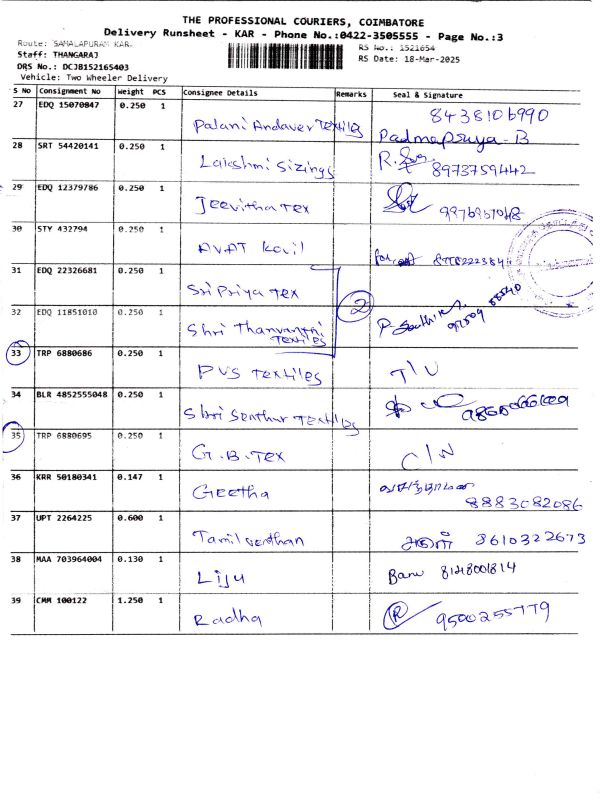 THE PROFESSIONAL COURIERS, COIMBATORE
Delivery Runsheet - KAR - Phone No.:0422-3505555 - Page No.:3
Route: SAMALAPURAM KAR.
Staff: THANGARAJ
RS No.: 1521654
DRS No.: DCJB152165403
RS Date: 18-Mar-2025
Vehicle: Two Wheeler Delivery
S No Consignment No Weight PCS Consignee Details Remarks Seal & Signature
27 EDQ 15070847 0.250 1 Palani Andaver Textiles 8438106990
Padmapriya B
28 SRT 54420141 0.250 1 Lakshmi Sizings R. 8973759442
29 EDQ 12379786 0.250 1 Jeevitha Tex
30 STY 432794 0.250 1 AVAT Kovil
31 EDQ 22326681 0.250 1 Sri Priya Tex
2
32 EDQ 11851010 0.250 1 Shri Thanvanthi Textiles
33 TRP 6880686 0.250 1 PVS Textiles
34 BLR 4852555048 0.250 1 Shri Senthur Textiles
35 TRP 6880695 0.250 1 G.B.Tex
36 KRR 50180341 0.147 1 Geetha 8883082086
37 UPT 2264225 0.600 1 8610322673
38 MAA 703964004 0.130 1 Liju Banu 8148001814
39 CMM 100122 1.250 1 Radha R 9500255779